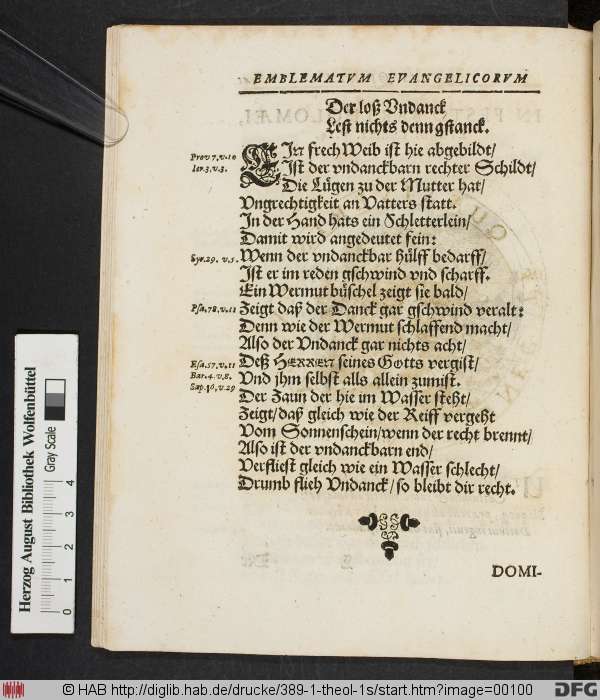 EMBLEMATVM EVANGELICORVM
Der loß Vndanck
Lest nichts denn gstanck.
Prov 7, v.10
EIn frech Weib ist hie abgebildt/
Ier.3.v.3.
Ist der vndanckbarn rechter Schildt/
Die Lügen zu der Mutter hat/
Vngrechtigkeit an Vatters statt.
In der Hand hats ein Fchletterlein/
Damit wird angedeutet fein:
Syr.29. v.5.
Wenn der vndanckbar hülff bedarff/
Ist er im reden gschwind vnd scharff.
Ein Wermut büschel zeigt sie bald/
Psa.78.v.11
Zeigt daß der Danck gar gschwind veralt:
Denn wie der Wermut schlaffend macht/
Also der Vndanck gar nichts acht/
Esa.57.v.11
Deß HERREN seines GOtts vergist/
Bar.4.v.8.
Vnd jhm selbst alls allein zumist.
Sap.16.v.29
Der Zaun der hie im Wasser steht/
Zeigt/daß gleich wie der Reiff vergeht
Vom Sonnenschein/wenn der recht brennt/
Also ist der vndanckbarn end/
Verfliest gleich wie ein Wasser schlecht/
Drumb flieh Vndanck/so bleibt dir recht.
DOMI-
Herzog August Bibliothek Wolfenbüttel
Gray Scale
0 1 2 3 4
© HAB http://diglib.hab.de/drucke/389-1-theol-1s/start.htm?image=00100
DFG